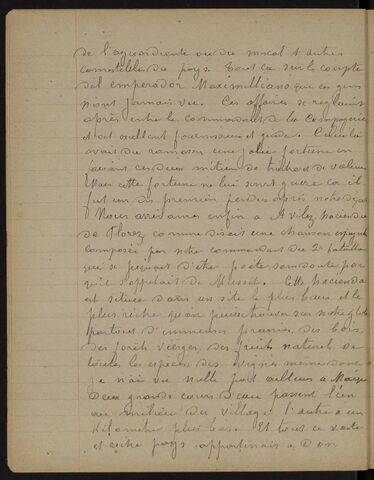 de l'aguardiente ou du mescal et autres
comestibles du pays. Tout ca sur le compte
del emperador Maximilliano que ces gens
n'ont jamais vu. Ces affaires se reglaient
après entre le commandant de la compagnie
et cet excellent fournisseur et guide. Celui la
avait du ramasser une jolie fortune en
faisant ces deux métiers de traitre et de voleur
Mais cette fortune ne lui servit guere car il
fut un des premiers pendus après notre départ
Nous arrivames enfin à Avilez hacienda
de Florez comme disait une chanson espagnole
composée par notre commandant du 2e bataillon
que se piquait d'être poète sans doute parce
qu'il s'appelait de Musset. Cette hacienda
est située dans un site le plus beau et le
plus riche qu'on puisse trouver sur notre globe
partout d'immenses prairies, des bois,
des forêts vierges, des fruits naturels de
toutes les espèces, des vignes même dont
je n'ai vu nulle part ailleurs à Mexique
Deux grands cours d'eau passent l'un
au milieu du village l'autre a un
kilometre plus bas. Et tout ce vaste
et riche pays appartenait à Don